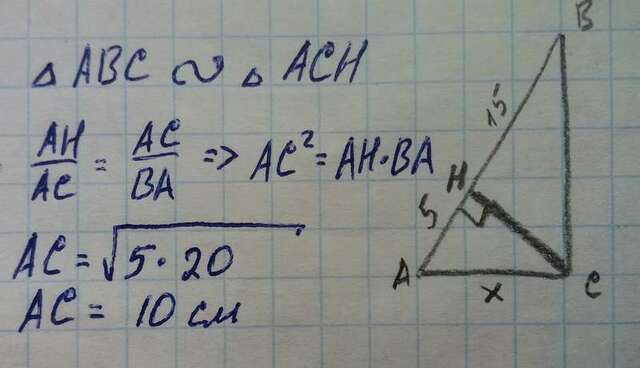 △ ABC ∾ △ ACH
AH/AC = AC/BA => AC² = AH·BA
AC = √5·20
AC = 10 см
B
15
H
5
A
x
C